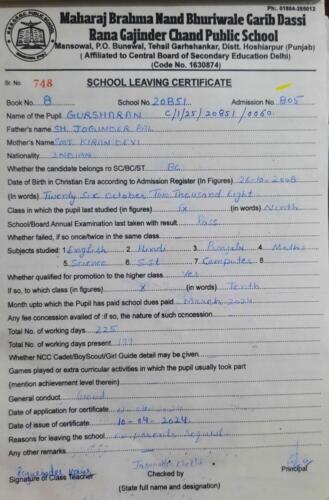 Ph.: 01884-265012
Maharaj Brahma Nand Bhuriwale Garib Dassi
Rana Gajinder Chand Public School
Mansowal, P.O. Bunewal, Tehsil Garhshankar, Distt. Hoshiarpur (Punjab)
( Affiliated to Central Board of Secondary Education Delhi)
(Code No. 1630874)
Sr. No. 748 SCHOOL LEAVING CERTIFICATE
Book No. 8 School No. 20851 Admission No. 805
Name of the Pupil GURSHARAN C/1/25/20851/0060
Father's name SH. JOGINDER PAL
Mother's Name SMT. KIRAN DEVI
Nationality INDIAN
Whether the candidate belongs ro SC/BC/ST BC
Date of Birth in Christian Era according to Admission Register (In Figures) 26-10-2008
(In words) Twenty Six October Two Thousand Eight
Class in which the pupil last studied (in figures) IX (in Words) Ninth
School/Board Annual Examination last taken with result Pass
Whether failed, if so once/twice in the same class
Subjects studied : 1. English 2. Hindi 3. Punjabi 4. Maths
5. Science 6. S.st 7. Computer 8.
Whether qualified for promotion to the higher class Yes
If so, to which class (in figures) X (in words) Tenth
Month upto which the Pupil has paid school dues paid March 2024
Any fee concession availed of :if so, the nature of such concession.
Total No. of working days 225
Total No. of working days present
Whether NCC Cadet/BoyScout/Girl Guide detail may be given.
Games played or extra curricular activities in which the pupil usually took part
(mention achievement level therein)
General conduct Good
Date of application for certificate
Date of issue of certificate 10-04-2024
Reasons for leaving the school
Any other remarks
Signature of Class Teacher Checked by Principal
(State full name and designation)